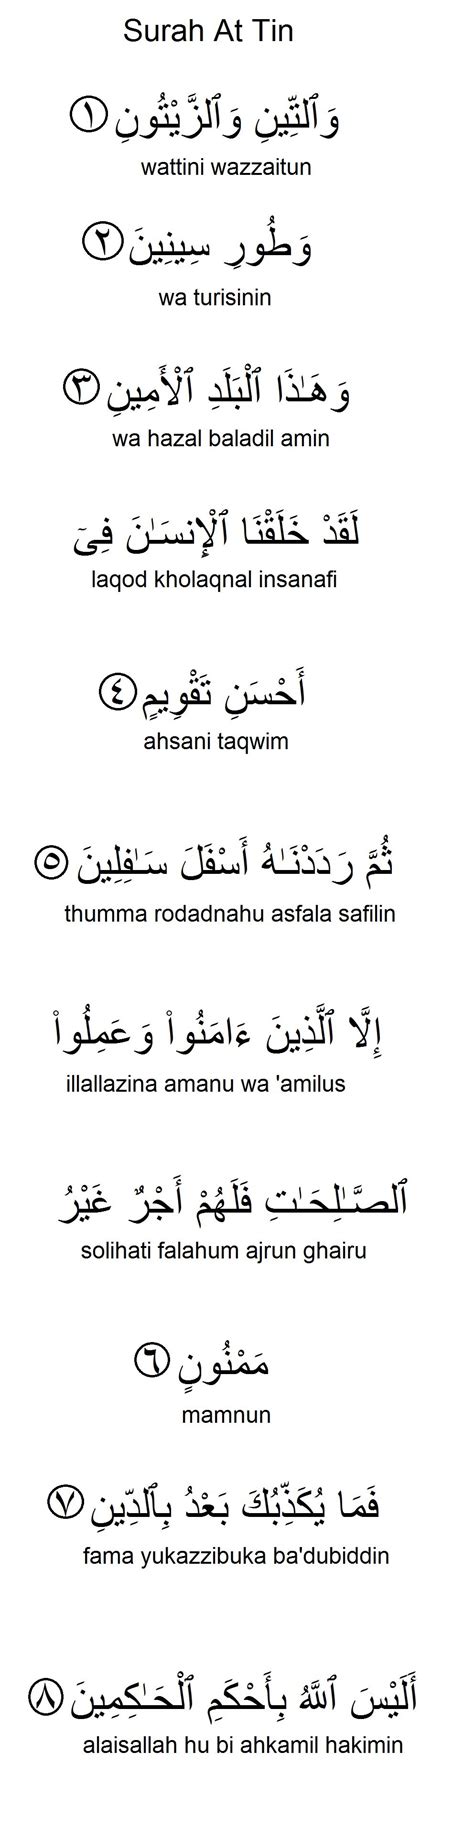 Surah At Tin
وَٱلتِّينِ وَٱلزَّيْتُونِ ١
wattini wazzaitun
وَطُورِ سِينِينَ ٢
wa turisinin
وَهَـٰذَا ٱلْبَلَدِ ٱلْأَمِينِ ٣
wa hazal baladil amin
لَقَدْ خَلَقْنَا ٱلْإِنسَـٰنَ فِىٓ
laqod kholaqnal insanafi
أَحْسَنِ تَقْوِيمٍ ٤
ahsani taqwim
ثُمَّ رَدَدْنَـٰهُ أَسْفَلَ سَـٰفِلِينَ ٥
thumma rodadnahu asfala safilin
إِلَّا ٱلَّذِينَ ءَامَنُوا۟ وَعَمِلُوا۟
illallazina amanu wa 'amilus
ٱلصَّـٰلِحَـٰتِ فَلَهُمْ أَجْرٌ غَيْرُ
solihati falahum ajrun ghairu
مَمْنُونٍ ٦
mamnun
فَمَا يُكَذِّبُكَ بَعْدُ بِٱلدِّينِ ٧
fama yukazzibuka ba'dubiddin
أَلَيْسَ ٱللَّهُ بِأَحْكَمِ ٱلْحَـٰكِمِينَ ٨
alaisallah hu bi ahkamil hakimin